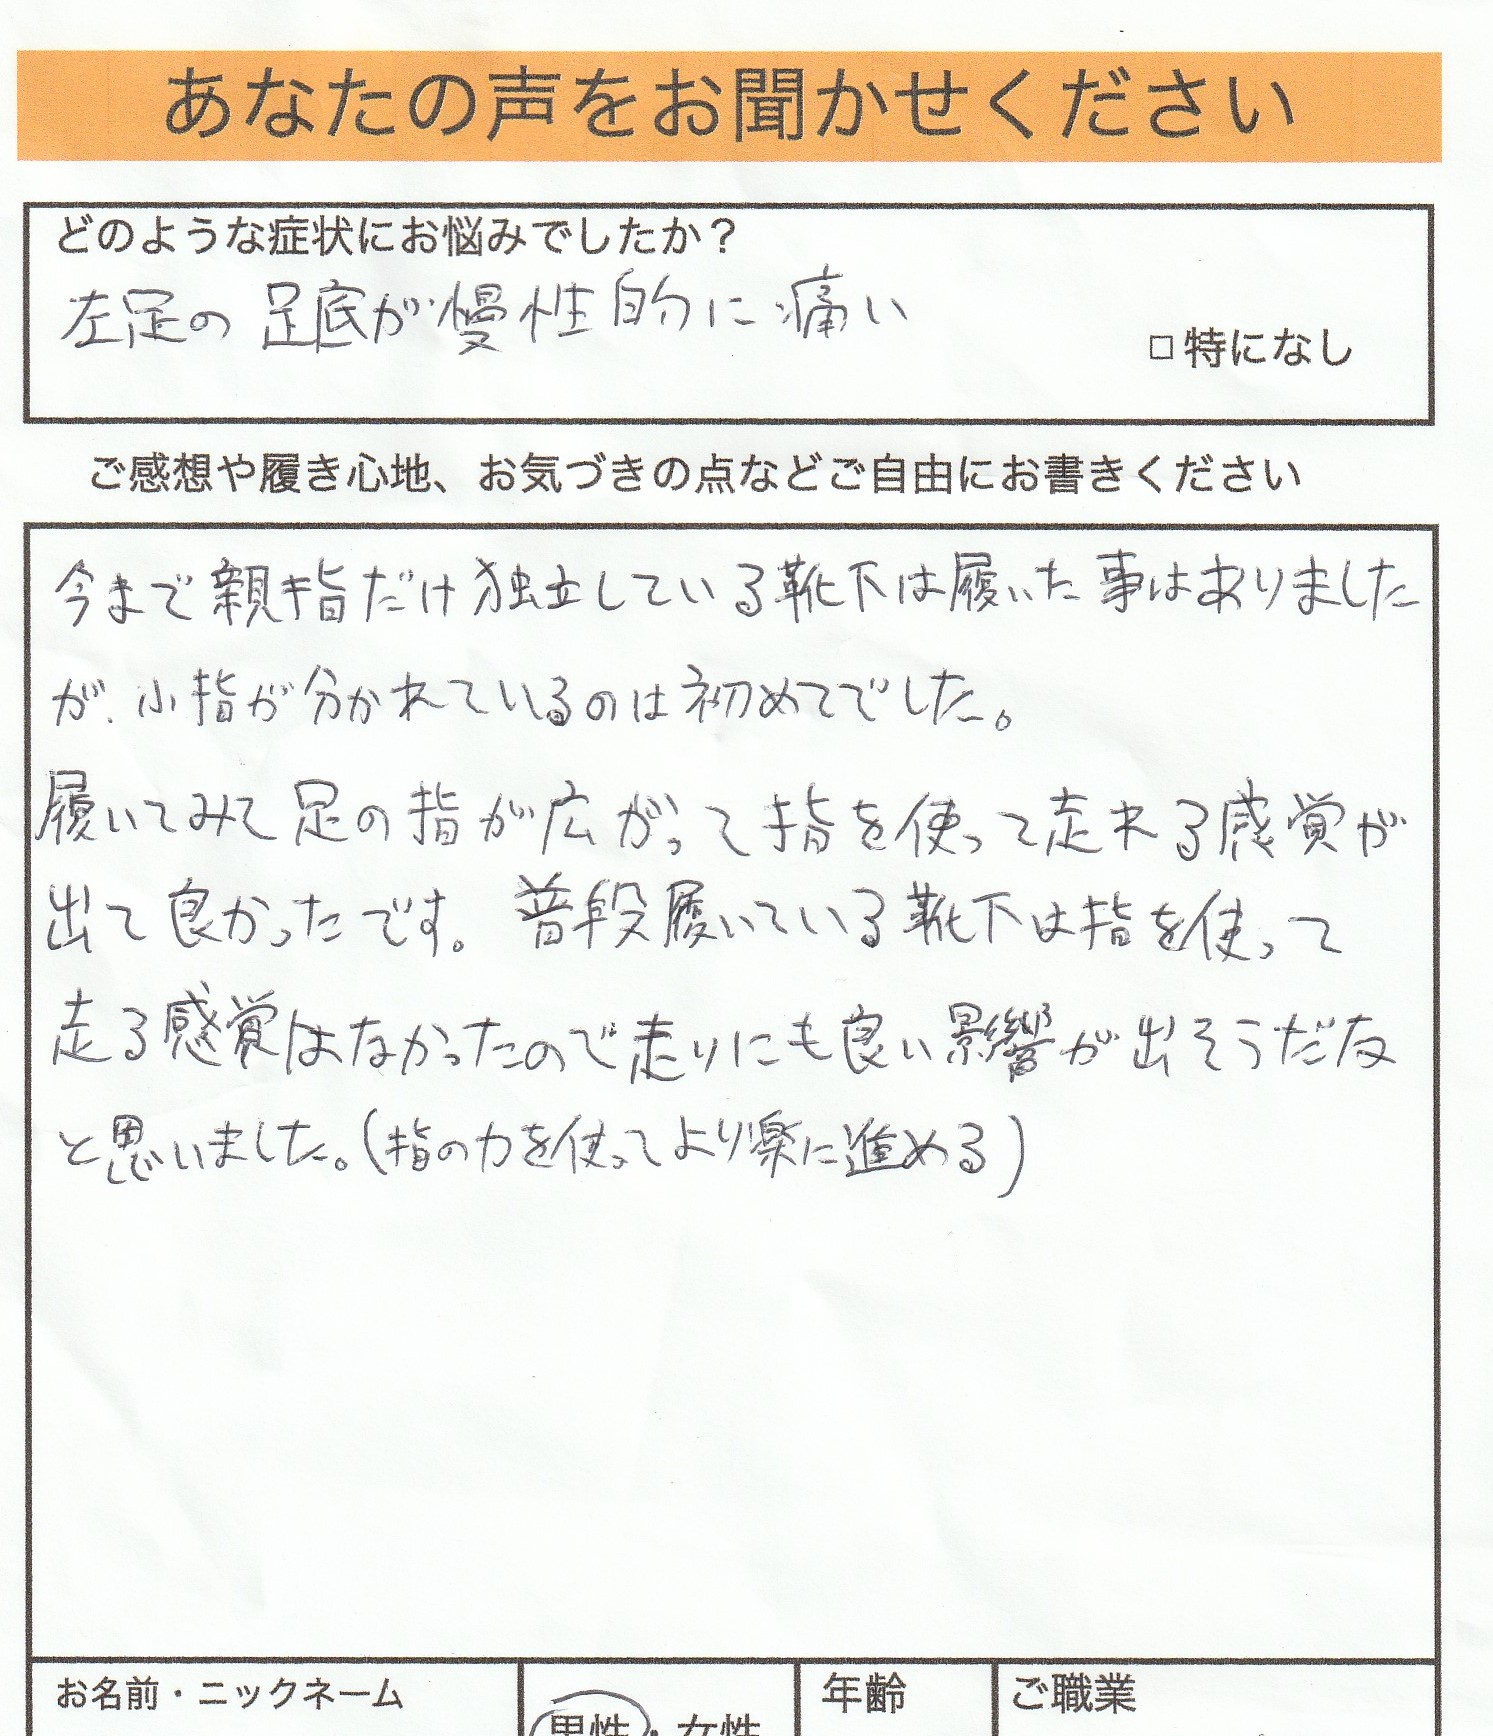 あなたの声をお聞かせください
どのような症状にお悩みでしたか？
左足の足底が慢性的に痛い
□ 特になし
ご感想や履き心地、お気づきの点などご自由にお書きください
今まで親指だけ独立している靴下は履いた事はありました
が、小指が分かれているのは初めてでした。
履いてみて足の指が広がって指を使って走れる感覚が
出て良かったです。普段履いている靴下は指を使って
走る感覚はなかったので走りにも良い影響が出そうだな
と思いました。(指の力を使ってより楽に進める)
お名前・ニックネーム
男性・女性
年齢
ご職業